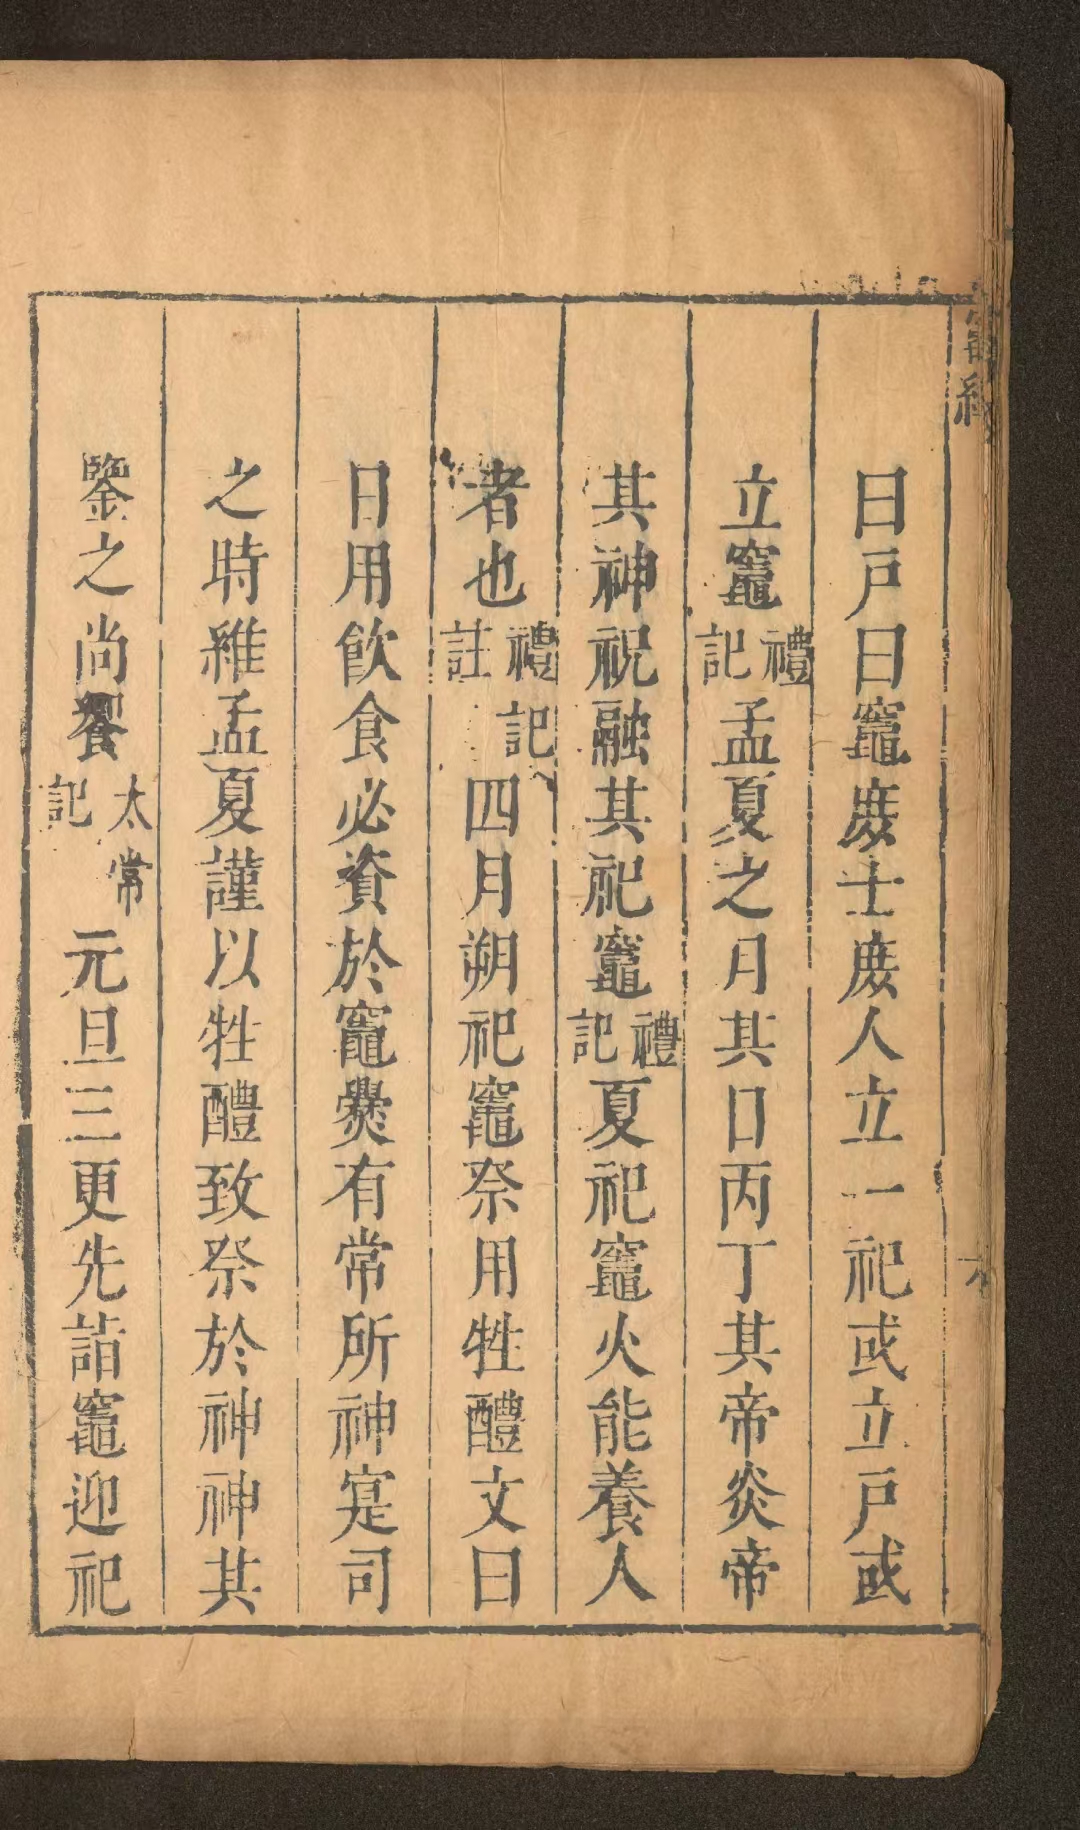 曰戶曰竈庻士庻人立一祀或立戶或
立竈禮記孟夏之月其日丙丁其帝炎帝
其神祝融其祀竈禮記夏祀竈火能養人
者也禮記註四月朔祀竈祭用牲醴文曰
日用飲食必資於竈爨有常所神寔司
之時維孟夏謹以牲醴致祭於神神其
鑒之尚饗太常記元旦三更先詣竈迎祀